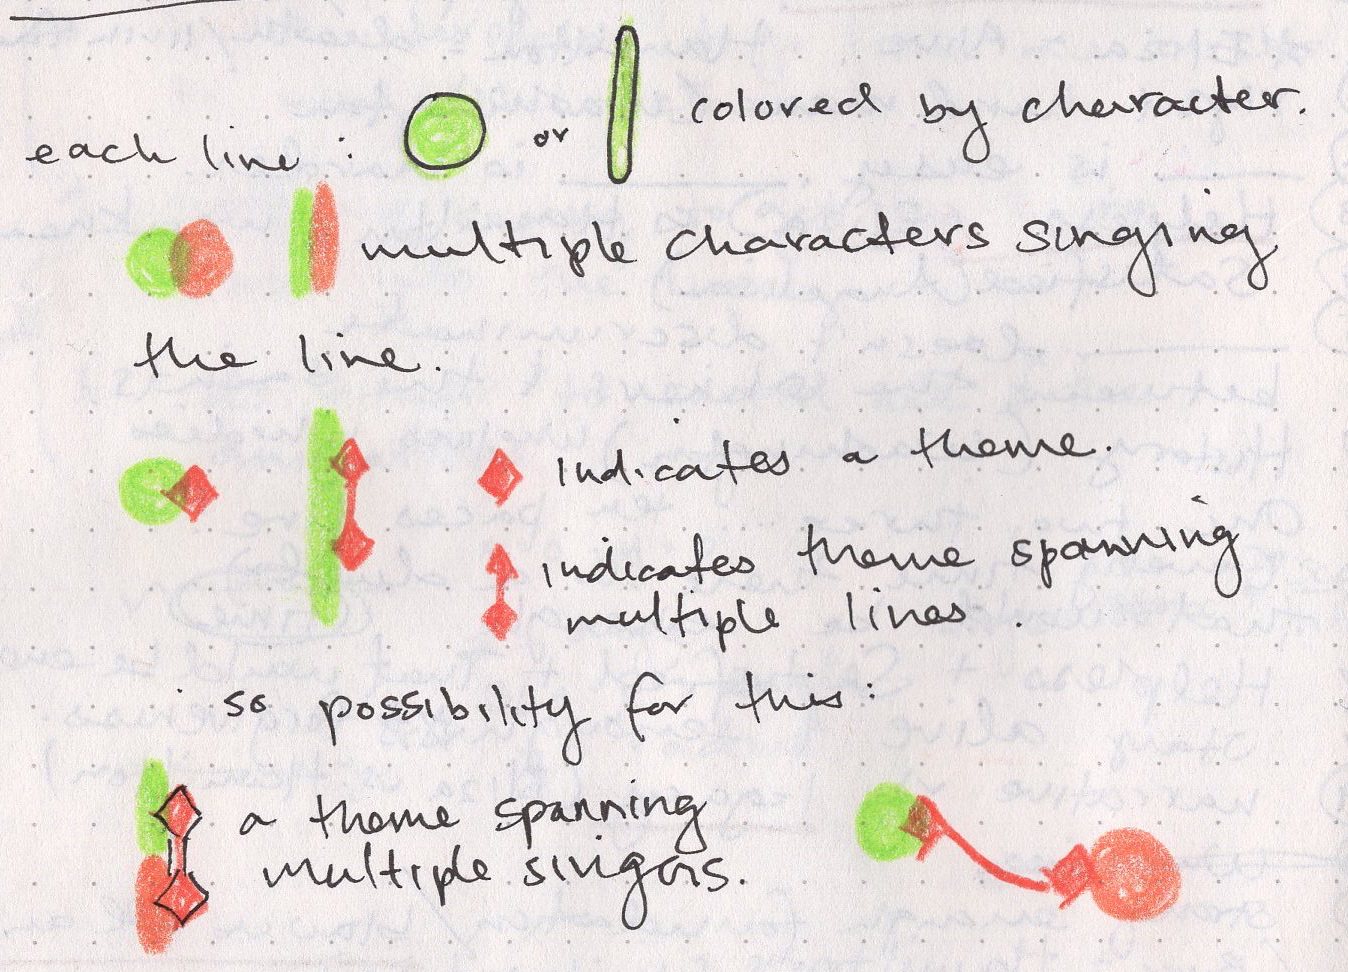 each line : or colored by character.
multiple characters singing
the line.
indicates a theme.
indicates theme spanning
multiple lines.
so possibility for this:
a theme spanning
multiple singers.